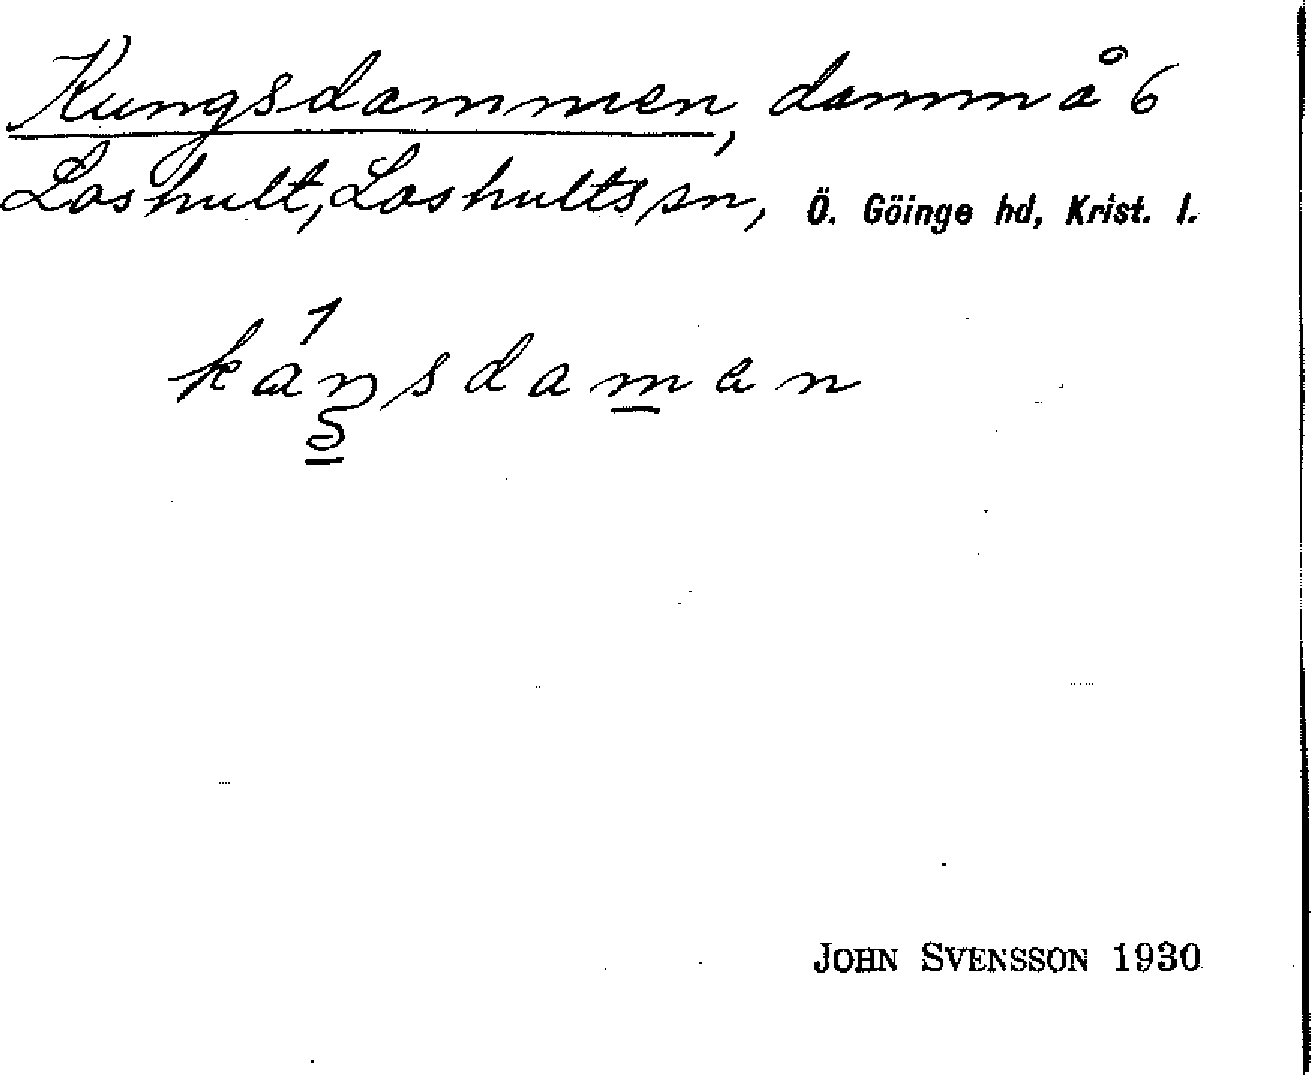 Kungsdammen, damm å 6
Loshult, Loshults sn, Ö. Göinge hd, Krist. l.
JOHN SVENSSON 1930